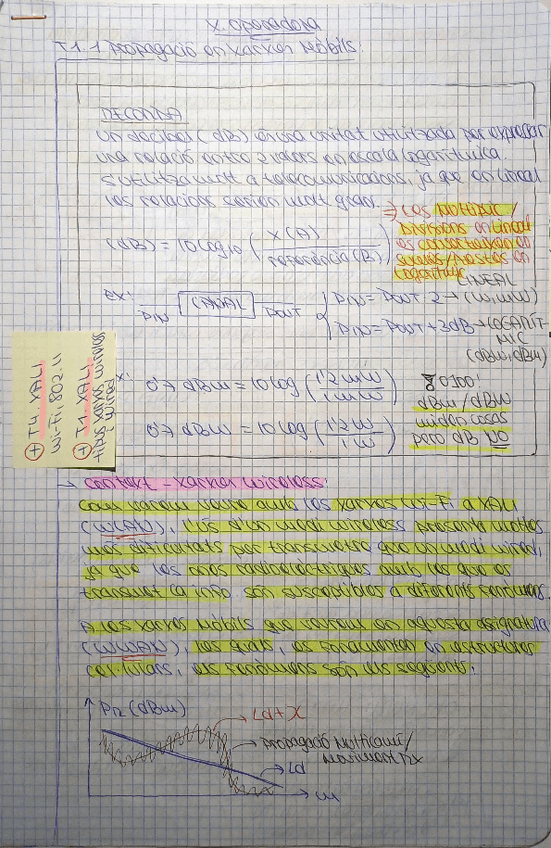 X. Operadora
T1.1 Propagació en Xarxes Mòbils
RECORDA:
Un decibel (dB) és una unitat utilitzada per expressar
una relació entre 2 valors en escala logarítmica.
S'utilitza molt a telecomunicacions, ja que en lineal
les relacions serien molt grans.
⇒ Les Multiplic/
Divisions en lineal
es converteixen en
sumes/restes en
logarítmic
(dB) = 10 log10 ( X(A) / referència(B) )
ex:
PIN CANAL POUT
LINEAL
PIN = POUT · 2 → (W, mW)
PIN = POUT + 3dB → LOGARÍT-
MIC
(dBW, dBm)
0'7 dBm = 10 log ( 1'2 mW / 1 mW )
0'7 dBW = 10 log ( 1'2 W / 1 W )
dBm / dBW
miden cosas
pero dB NO
+ T4. XALI
Wi-Fi 802.11
+ T1. XALI
tipus xarxes wireless
→ Context - xarxes wireless:
Com varem veure amb les xarxes Wi-Fi a XALI
(WLAN), l'ús d'un medi wireless presenta moltes
més dificultats per transmetre que un medi wired,
ja que les ones radioelèctriques amb les que es
transmet la info són susceptibles a diferents fenòmens.
A les xarxes mòbils que veurem en aquesta assignatura
(WWAN), les quals, es fonamenten en estructures
cel·lulars, els fenòmens són els següents:
PR (dBm)
Ld + X
propagació Multicamí/
Moviment RX
Ld
m